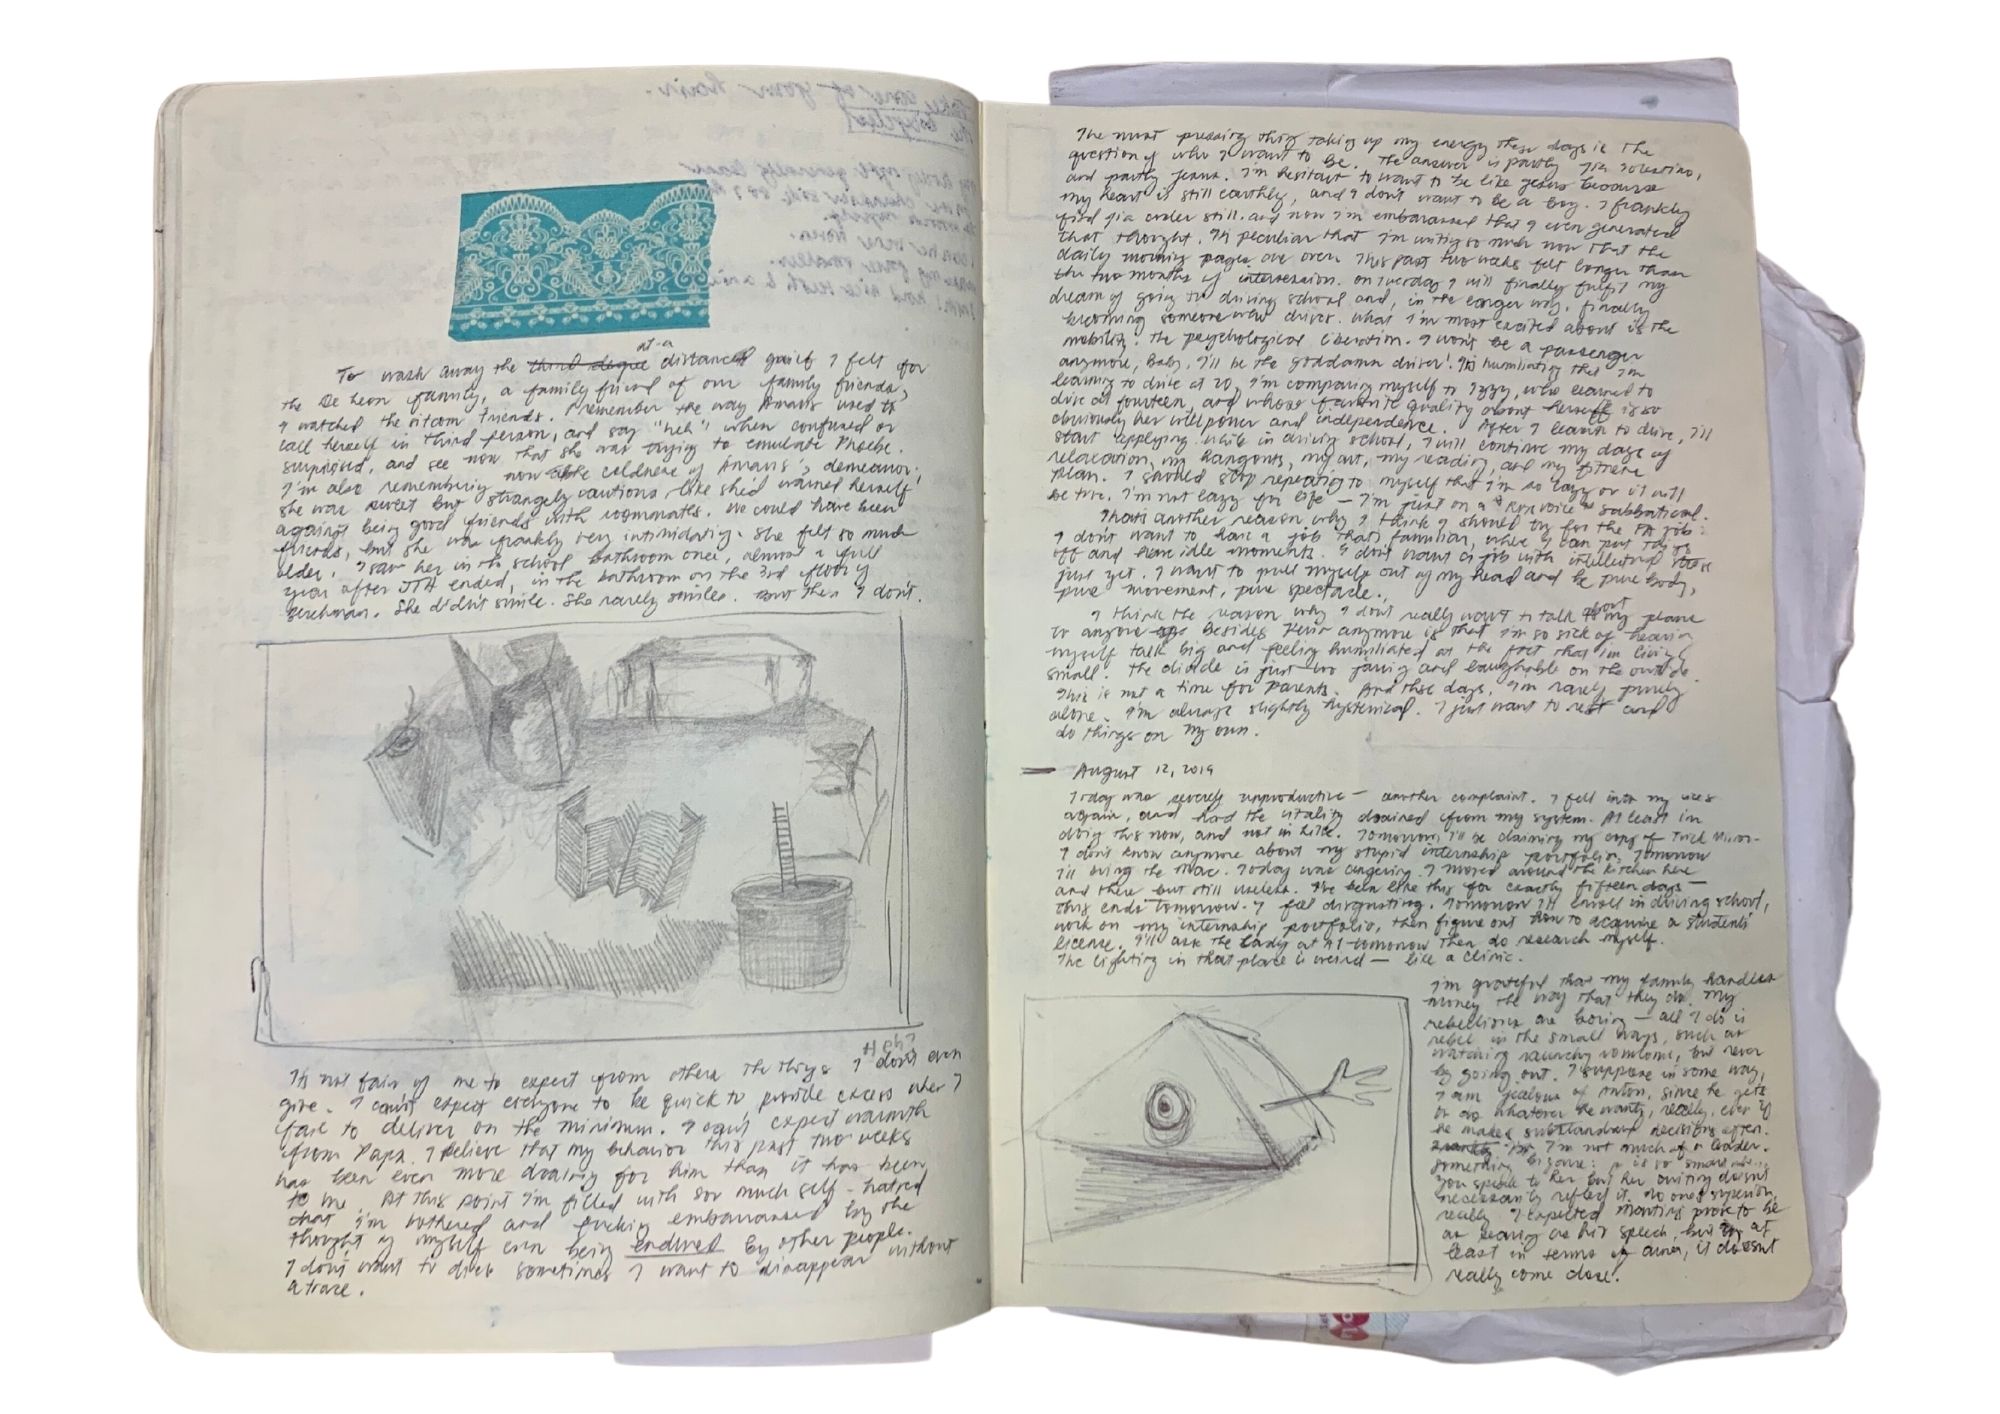 To wash away the third degree at-a distanced grief I felt for
the De Leon family, a family friend of our family friends,
I watched the sitcom Friends. I remember the way Amaris used to
call herself in third person, and say "heh"! when confused or
surprised, and see now that she was trying to emulate Phoebe.
I'm also remembering now the coldness of Amaris's demeanor:
she was sweet but strangely cautious, like she'd warned herself
against being good friends with roommates. We could have been
friends, but she was frankly very intimidating. She felt so much
older. I saw her in the school bathroom once, almost a full
year after JTA ended, in the bathroom on the 3rd floor of
She didn't smile. She rarely smiles. But then I don't.
It's not fair of me to expect from others the things I don't even
give. I can't expect everyone to be quick to provide excess when I
fail to deliver on the minimum. I can't expect warmth
from Papa. I believe that my behavior this past two weeks
has been even more draining for him than it has been
to me. At this point I'm filled with so much self-hatred
that I'm bothered and fucking embarrassed by the
thought of myself even being endured by other people.
I don't want to die, sometimes I want to disappear without
a trace.
The most pressing thing taking up my energy these days is the
question of who I want to be. The answer is partly Jia Tolentino,
and partly Jesus. I'm hesitant to want to be like Jesus because
my heart is still earthly, and I don't want to be a boy. I frankly
find Jia cooler still. and now I'm embarrassed that I even generated
that thought. It's peculiar that I'm writing so much now that the
daily morning pages are over. This past two weeks felt longer than
the two months of intersession. On Tuesday I will finally fulfil my
dream of going to driving school and, in the longer way, finally
becoming someone who drives. What I'm most excited about is the
mobility. The psychological liberation. I won't be a passenger
anymore, baby. I'll be the goddamn driver! It's humiliating that I'm
learning to drive at 20, I'm comparing myself to Izzy, who learned to
drive at fourteen, and whose favorite quality about herself is so
obviously her willpower and independence. After I learn to drive, I'll
start applying. While in driving school, I will continue my days of
relaxation, my hangouts, my art, my reading, and my fitness
plan. I should stop repeating to myself that I'm so lazy or it will
be true. I'm not lazy for life — I'm just on a sabbatical.
That's another reason why I think I should try for the FA job:
I don't want to have a job that's familiar, where I can put things
off and have idle moments. I don't want a job with intellectual stress
just yet. I want to pull myself out of my head and be pure body,
pure movement, pure spectacle.
I think the reason why I don't really want to talk about my plans
to anyone besides Kevin anymore is that I'm so sick of hearing
myself talk big and feeling humiliated at the fact that I'm living
small. The divide is just too jarring and laughable on the outside.
This is not a time for parents. And these days, I'm rarely purely
alone. I'm always slightly hysterical. I just want to rest and
do things on my own.
— August 12, 2019
Today was severely unproductive — another complaint. I fell into my vices
again, and had the vitality drained from my system. At least I'm
doing this now, and not in bed. Tomorrow, I'll be claiming my copy of Trick Mirror.
I don't know anymore about my stupid internship portfolio. Tomorrow
I'll bring the Mac. Today was angering. I moved around the kitchen here
and there but still useless. I've been like this for exactly fifteen days —
this ends tomorrow. I feel disgusting. Tomorrow I'll enroll in driving school,
work on my internship portfolio, then figure out how to acquire a student's
license. I'll ask the lady at A1 tomorrow then do research myself.
The lighting in that place is weird — like a clinic.
I'm grateful that my family handles
money the way that they do. My
rebellions are boring — all I do is
rebel in the small ways, such as
watching raunchy romcoms, but never
by going out. I suppose in some way,
I am jealous of Anton, since he gets
to do whatever he wants, really, even if
he makes substandard decisions often.
I'm not much of a leader.
Something bizarre: is so smart when
you speak to her but her writing doesn't
necessarily reflect it. No one's superior,
really. I expected Monty's prose to be
as searing as his speech, but at
least in terms of, it doesn't
really come close.